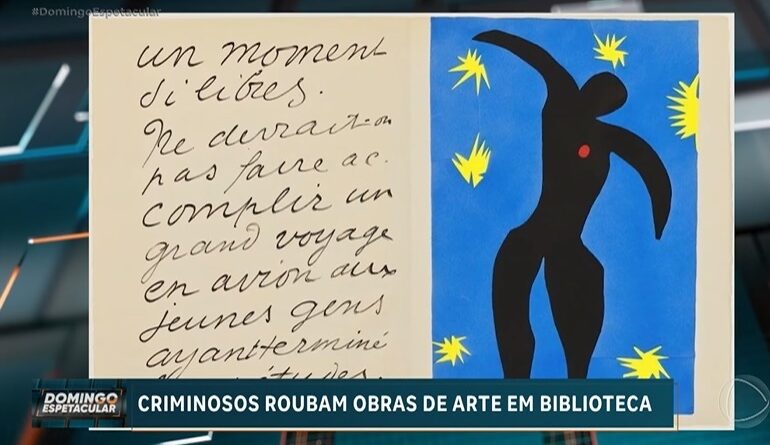 #DomingoEspetacular
un moment
si libres.
Ne devrait-on
pas faire ac_
complir un
grand voyage
en avion aux
jeunes gens
ayantterminé
DOMINGO
ESPETACULAR
CRIMINOSOS ROUBAM OBRAS DE ARTE EM BIBLIOTECA